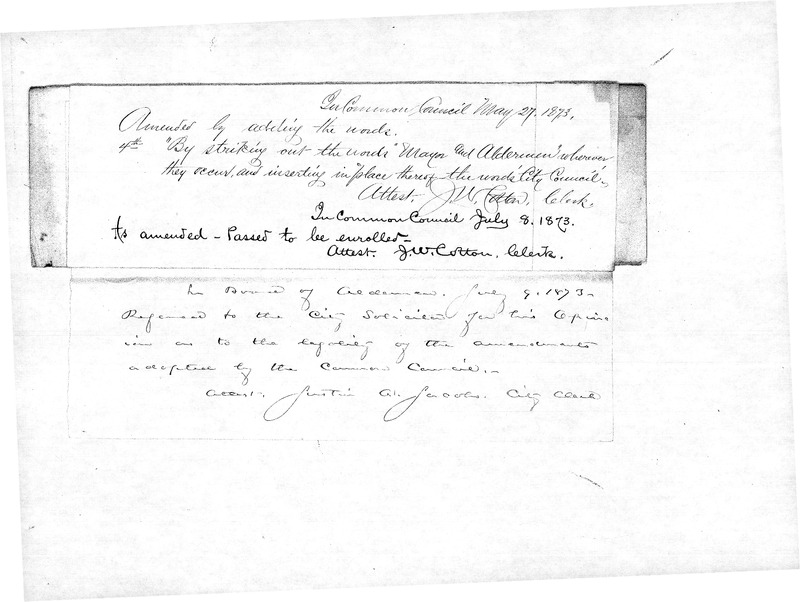 In Common Council May 27. 1873.
Amended by adding the words.
4th "By striking out the words "Mayor and Aldermen" wherever
they occur, and inserting in place thereof the words City Council".
Attest. J. W. Cotton, Clerk.
In Common Council July 8. 1873.
As amended – Passed to be enrolled –
Attest. J. W. Cotton. Clerk.
In Board of Aldermen. July 9. 1873 –
Referred to the City Solicitor for his Opin
ion as to the legality of the amendments
adopted by the Common Council. –
Attest. Justin A. Jacobs. City Clerk